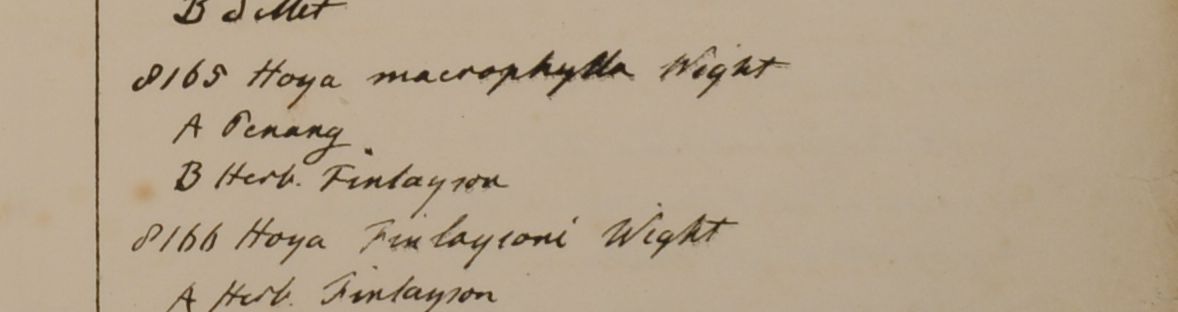 B Sillet
8165 Hoya macrophylla Wight
A Penang
B Herb. Finlayson
8166 Hoya Finlaysoni Wight
A Herb. Finlayson